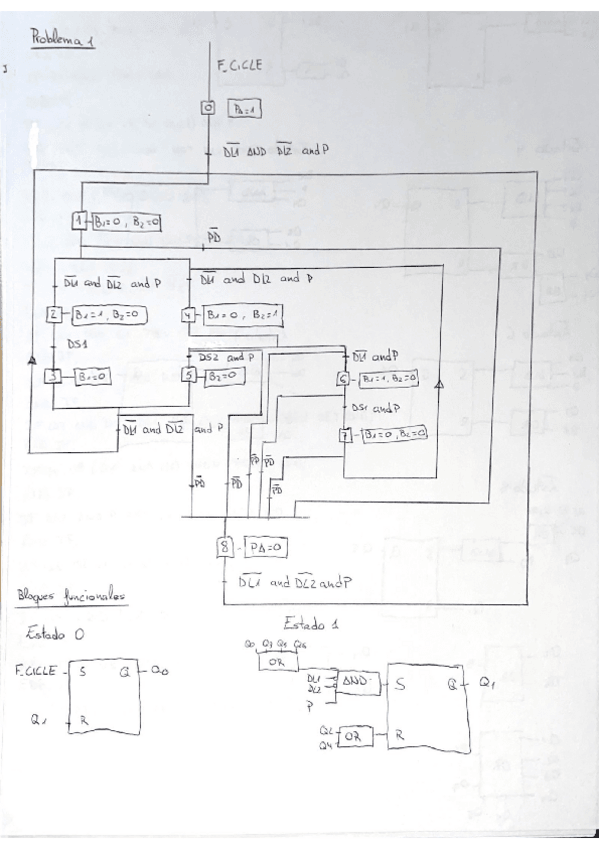 Problema 1
F_CICLE
0 PA=1
D̅L̅1̅ AND D̅L̅2̅ and P
1 B1=0, B2=0
P̅D̅
D̅L̅1̅ and D̅L̅2̅ and P
D̅L̅1̅ and DL2 and P
2 B1=1, B2=0
4 B1=0, B2=1
DS1
DS2 and P
D̅L̅1̅ and P
3 B1=0
5 B2=0
6 B1=1, B2=0
DS1 and P
D̅L̅1̅ and D̅L̅2̅ and P
7 B1=0, B2=0
P̅D̅ P̅D̅
P̅D̅ P̅D̅ P̅D̅
8 PA=0
D̅L̅1̅ and D̅L̅2̅ and P
Bloques funcionales
Estado 0
Estado 1
F_CICLE S Q Q0
Q1 R
OR
DL1
DL2
P
AND
S Q Q1
Q2
Q4
OR R